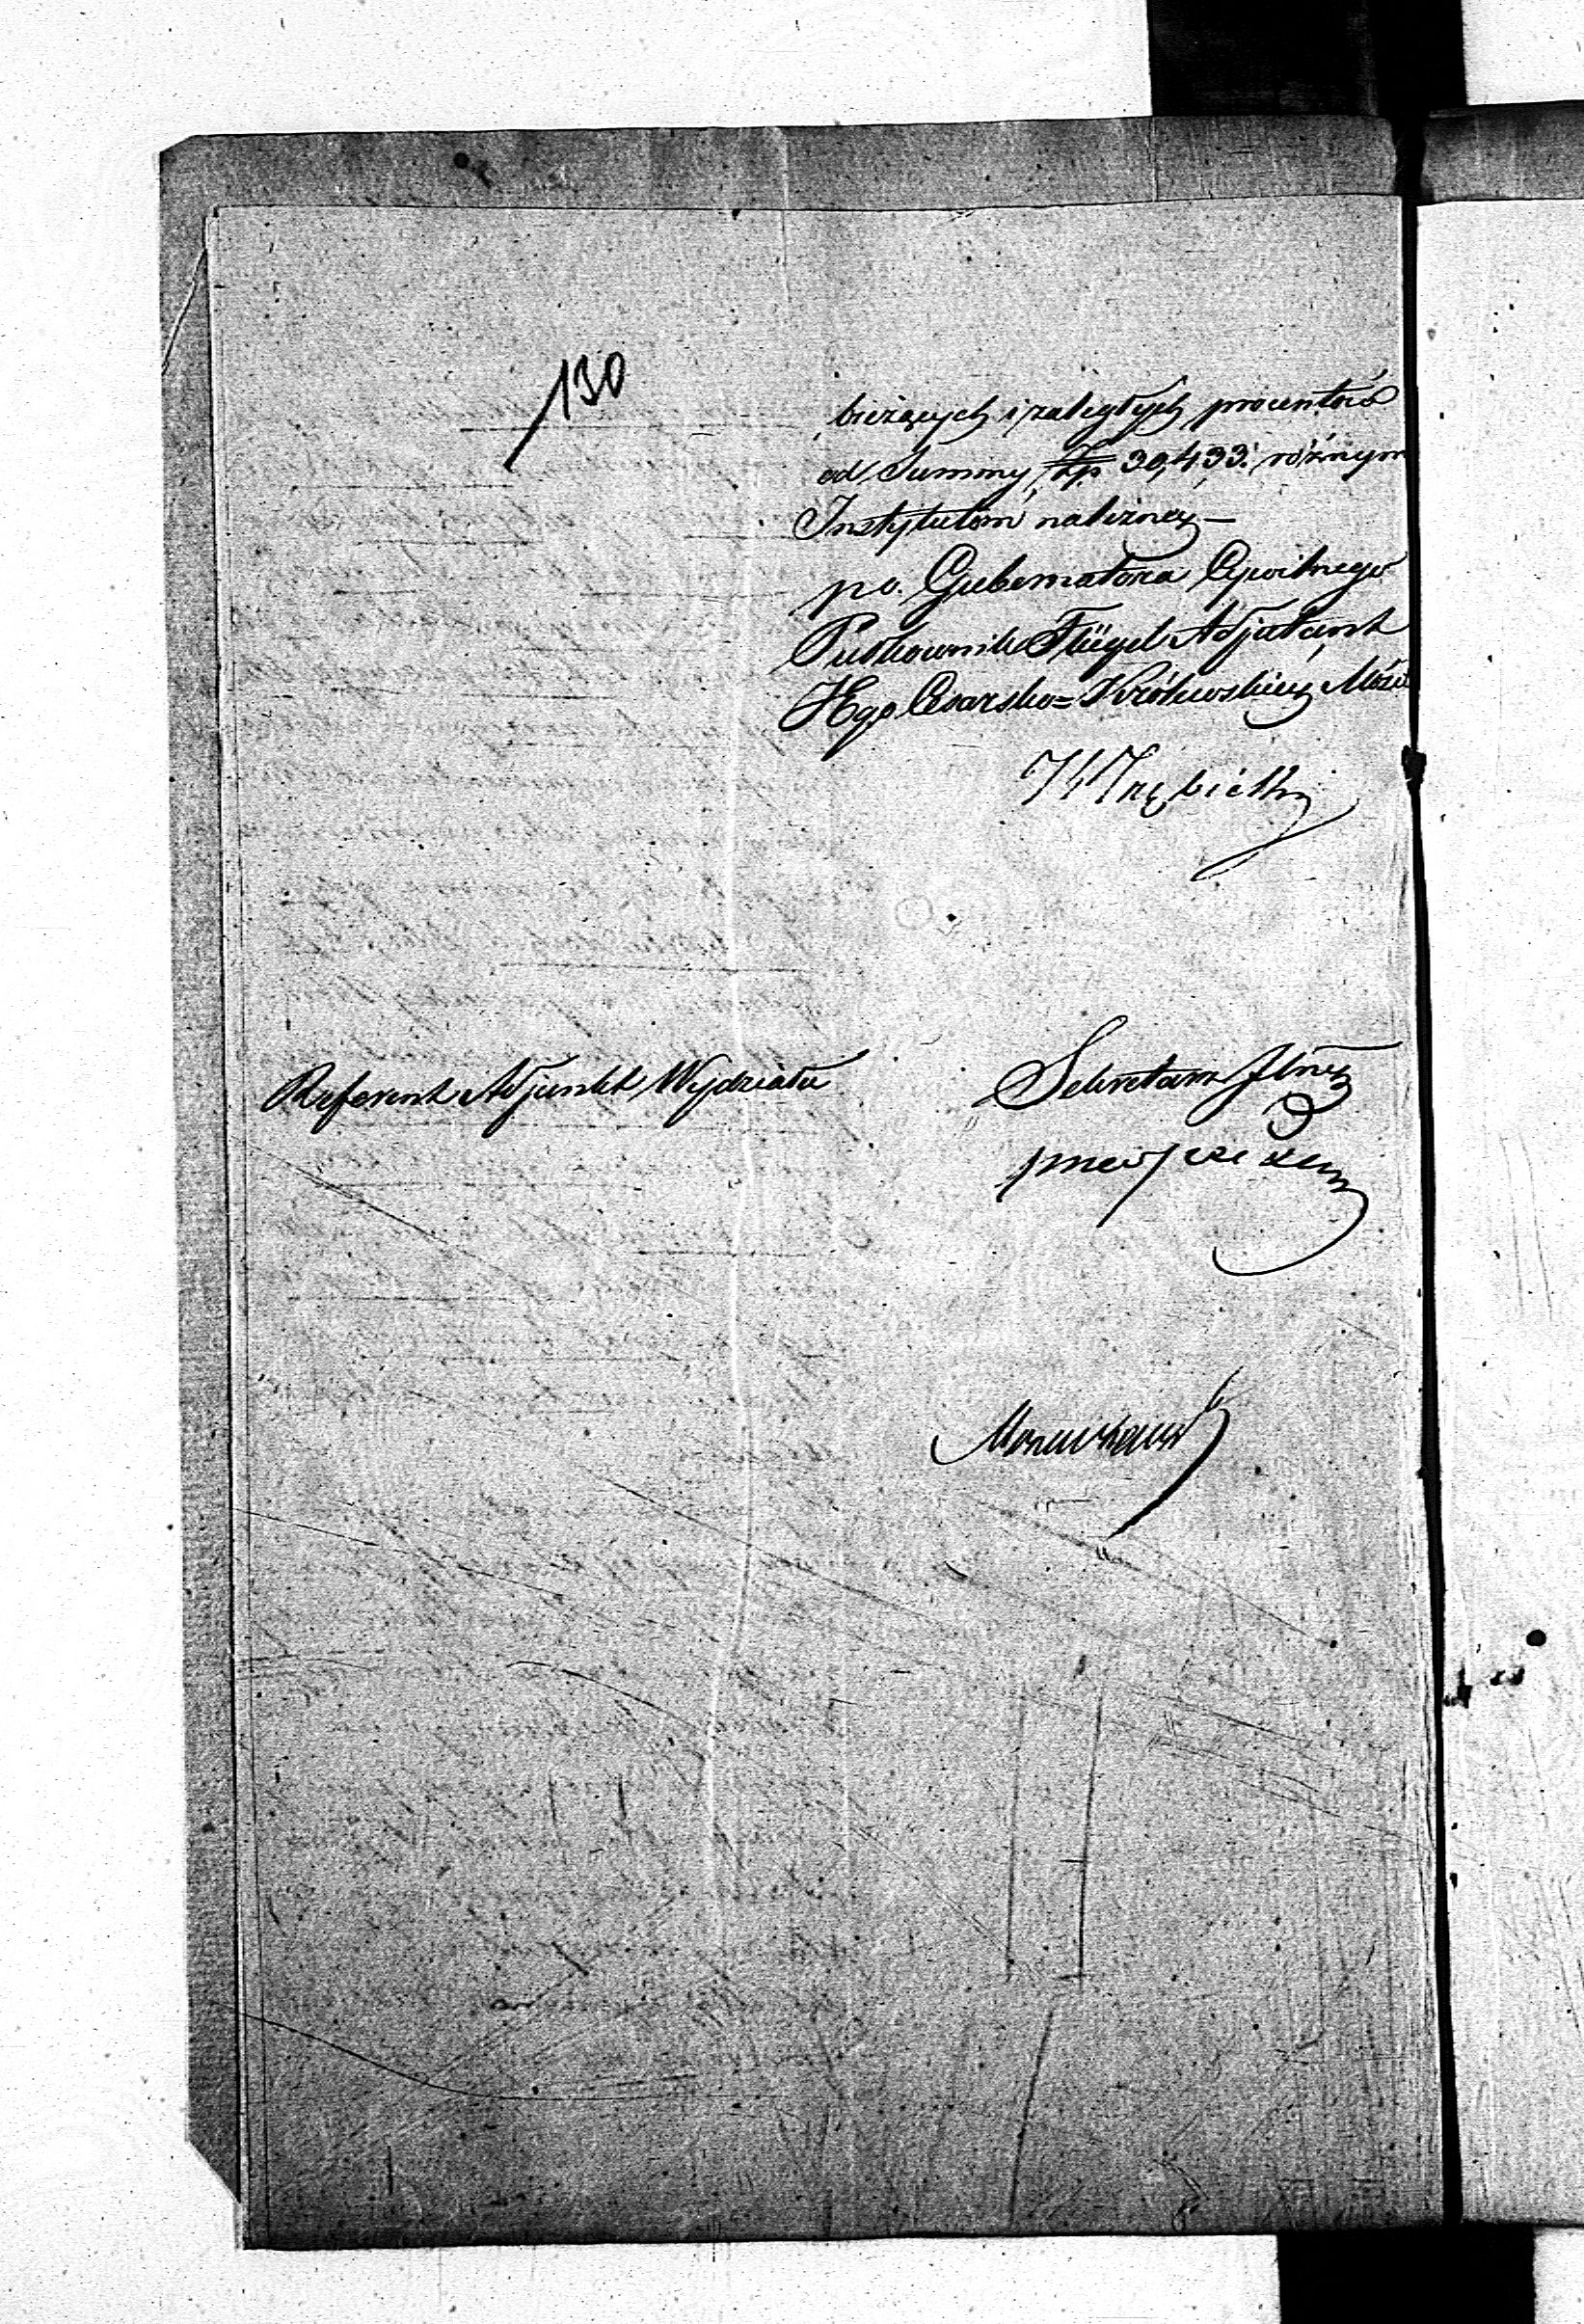 130
bieżących i zaległych procentów
od Summy Złp 30,433. różnym
Instytutom należney —
po. Gubernatora Cywilnego
Pułkownik Flügel Adjutant
JEgo Cesarsko= Królewskiey Mości
Trębicki
Referent Adjunkt Wydziału
Sekretarz Jlny